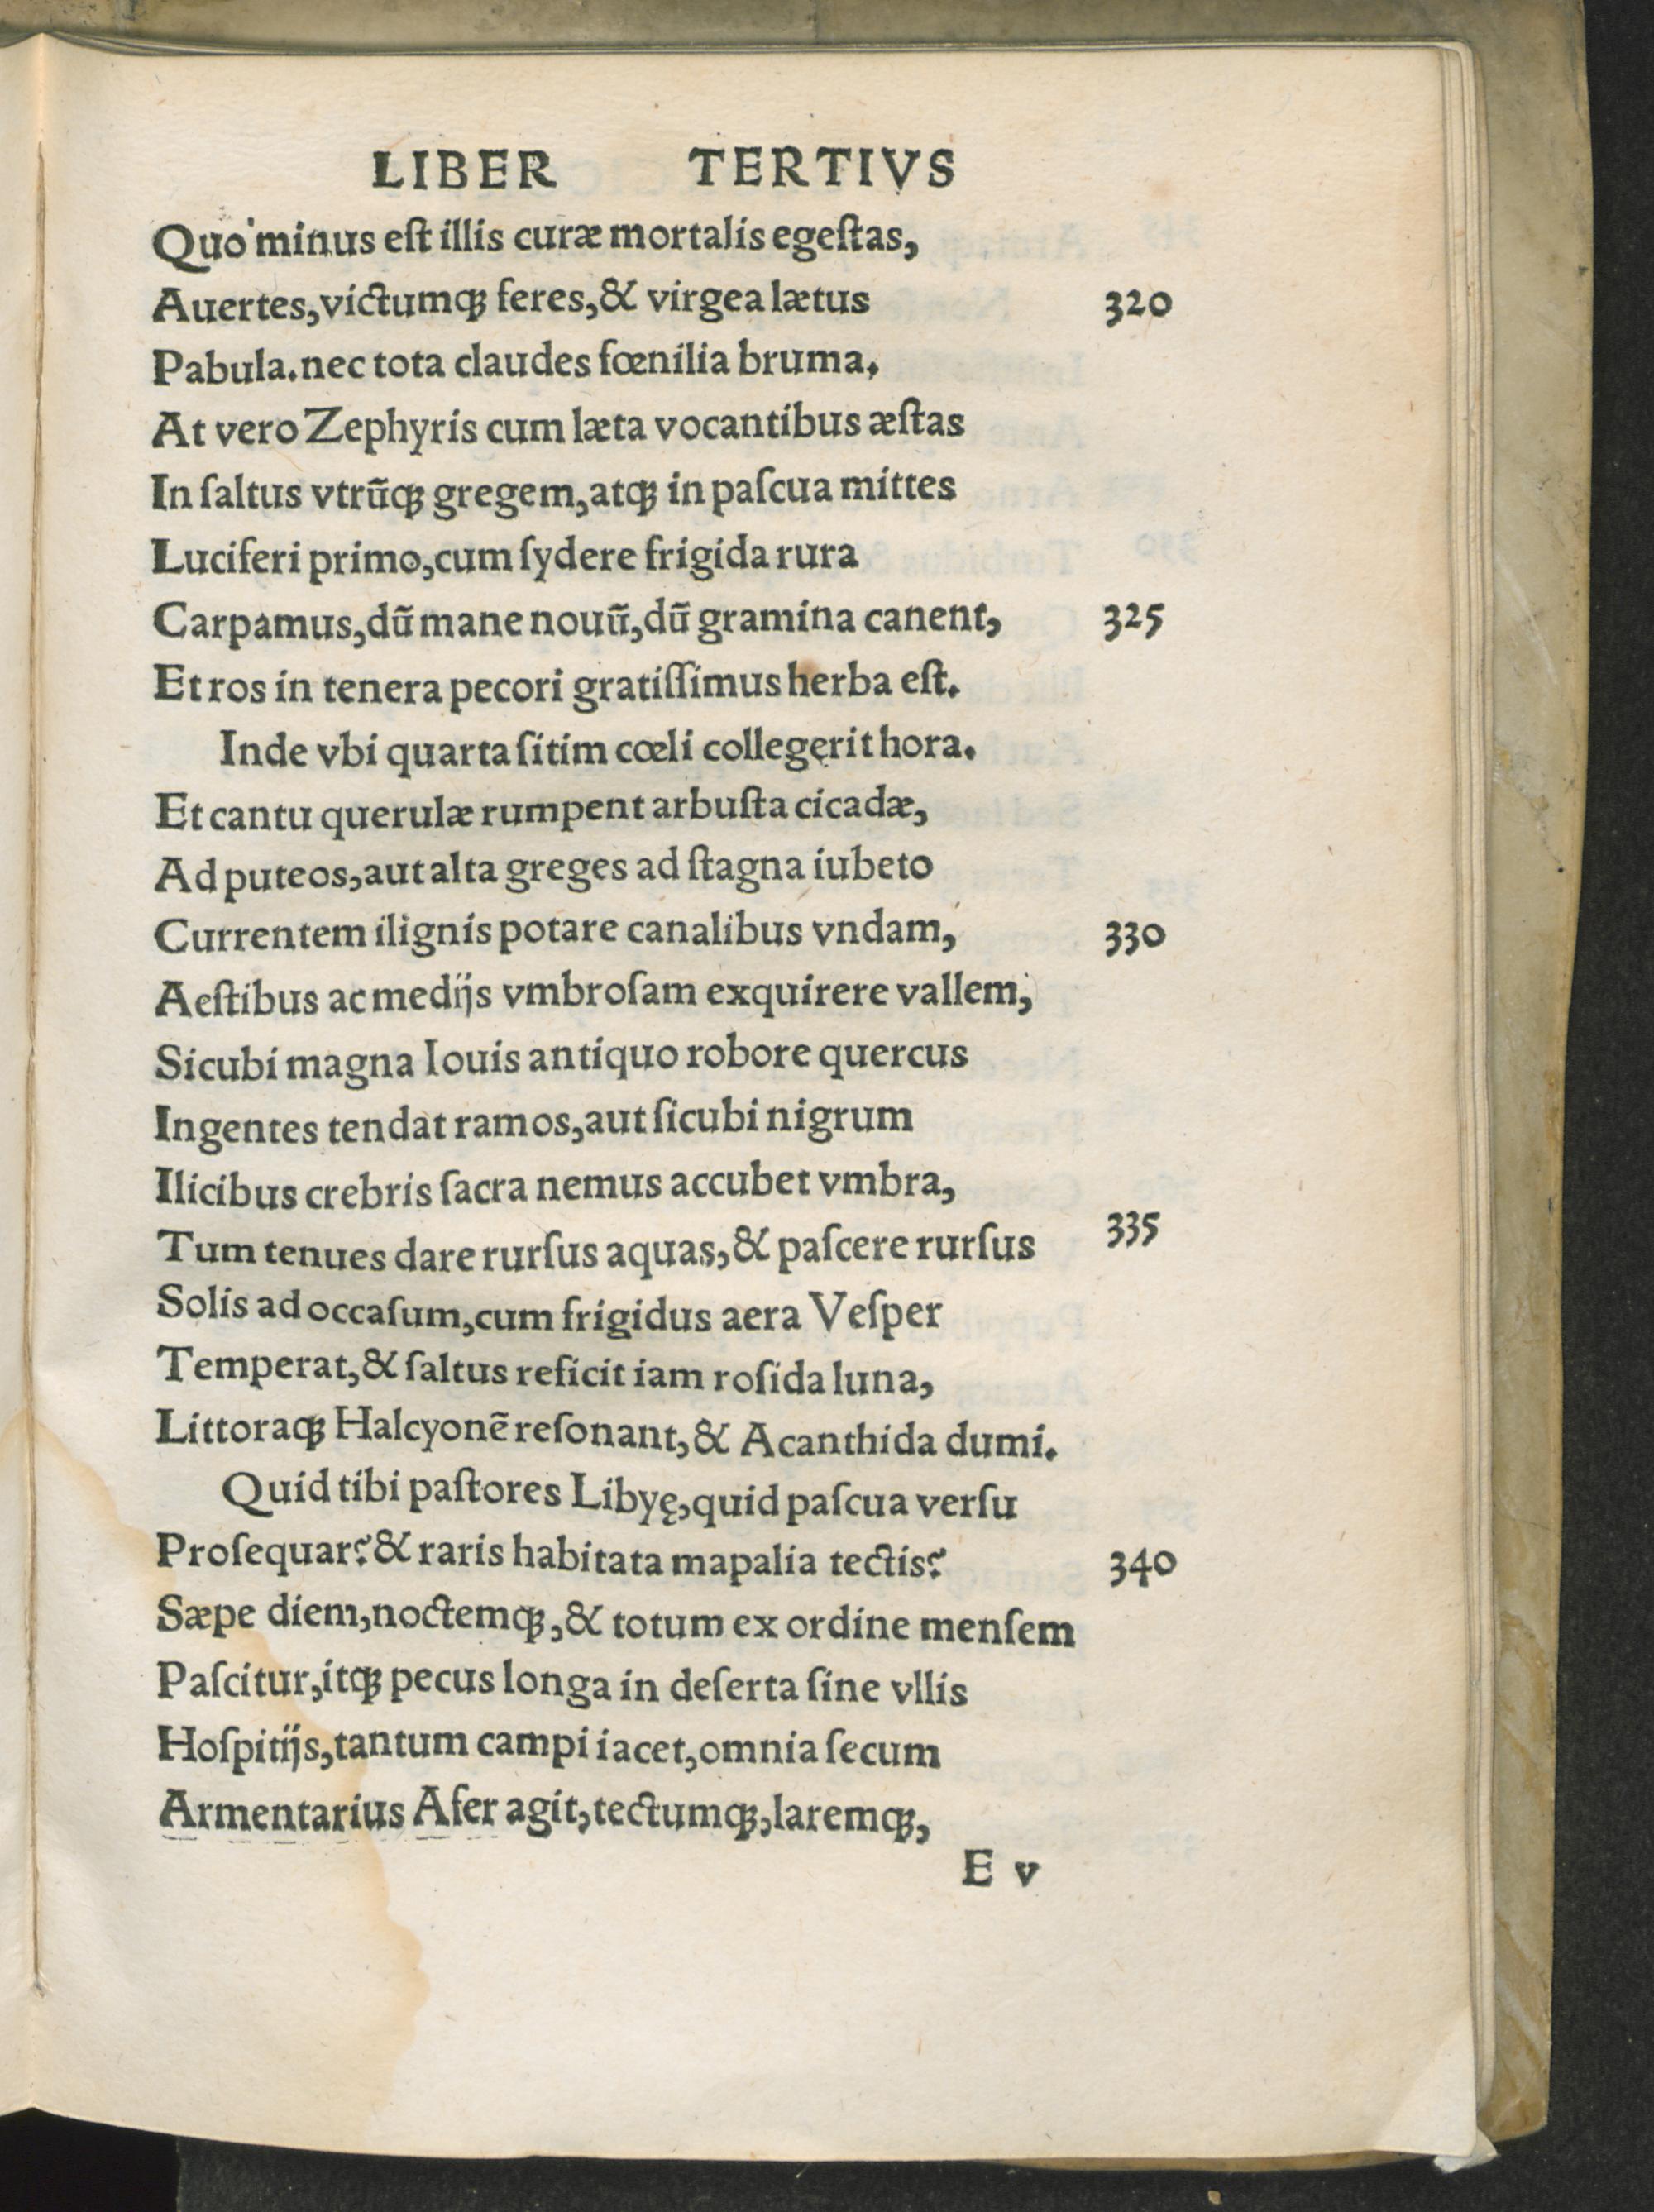 LIBER TERTIVS
Quo minus eſt illis curæ mortalis egeſtas,
Auertes,victumqȝ feres,& virgea lætus 320
Pabula.nec tota claudes fœnilia bruma.
At vero Zephyris cum læta vocantibus æſtas
In ſaltus vtrũqȝ gregem,atqȝ in paſcua mittes
Luciferi primo,cum ſydere frigida rura
Carpamus,dũ mane nouũ,dũ gramina canent, 325
Et ros in tenera pecori gratiſſimus herba eſt.
Inde vbi quarta ſitim cœli collegerit hora.
Et cantu querulæ rumpent arbuſta cicadæ,
Ad puteos,aut alta greges ad ſtagna iubeto
Currentem ilignis potare canalibus vndam, 330
Aeſtibus ac medijs vmbroſam exquirere vallem,
Sicubi magna Iouis antiquo robore quercus
Ingentes tendat ramos,aut ſicubi nigrum
Ilicibus crebris ſacra nemus accubet vmbra,
Tum tenues dare rurſus aquas,& paſcere rurſus 335
Solis ad occaſum,cum frigidus aera Veſper
Temperat,& ſaltus reficit iam roſida luna,
Littoraqȝ Halcyonẽ reſonant,& Acanthida dumi.
Quid tibi paſtores Libyę,quid paſcua verſu
Proſequar?& raris habitata mapalia tectis? 340
Sæpe diem,noctemqȝ,& totum ex ordine menſem
Paſcitur,itqȝ pecus longa in deſerta ſine vllis
Hoſpitijs,tantum campi iacet,omnia ſecum
Armentarius Afer agit,tectumqȝ,laremqȝ,
E v